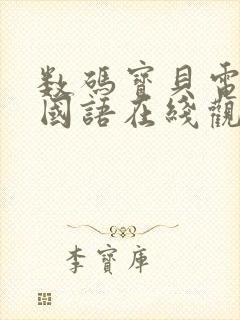 数码寶貝電
國語在綫觀
李寶庫